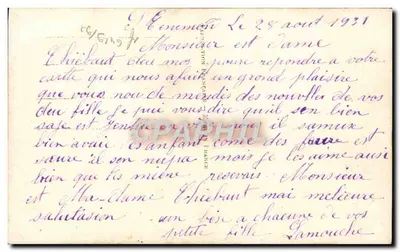 Tenemont Le 28 aout 1931
Monsieur est dame
Thiebaut deu moz pour repondre a votre
carte qui nous a fait un grond plaisire
que vous nou de mendes des nouvelles de vos
deu fille je pui vous dire qu'il son bien
saje est gentie il samuse
bien avair enfant come des est
il son mais je les aime ausi
bien que les miens recevais Monsieur
est Ma dame Thiebaut mai melieure
salutasion un bise a chacune de vos
petite fille Lamouche